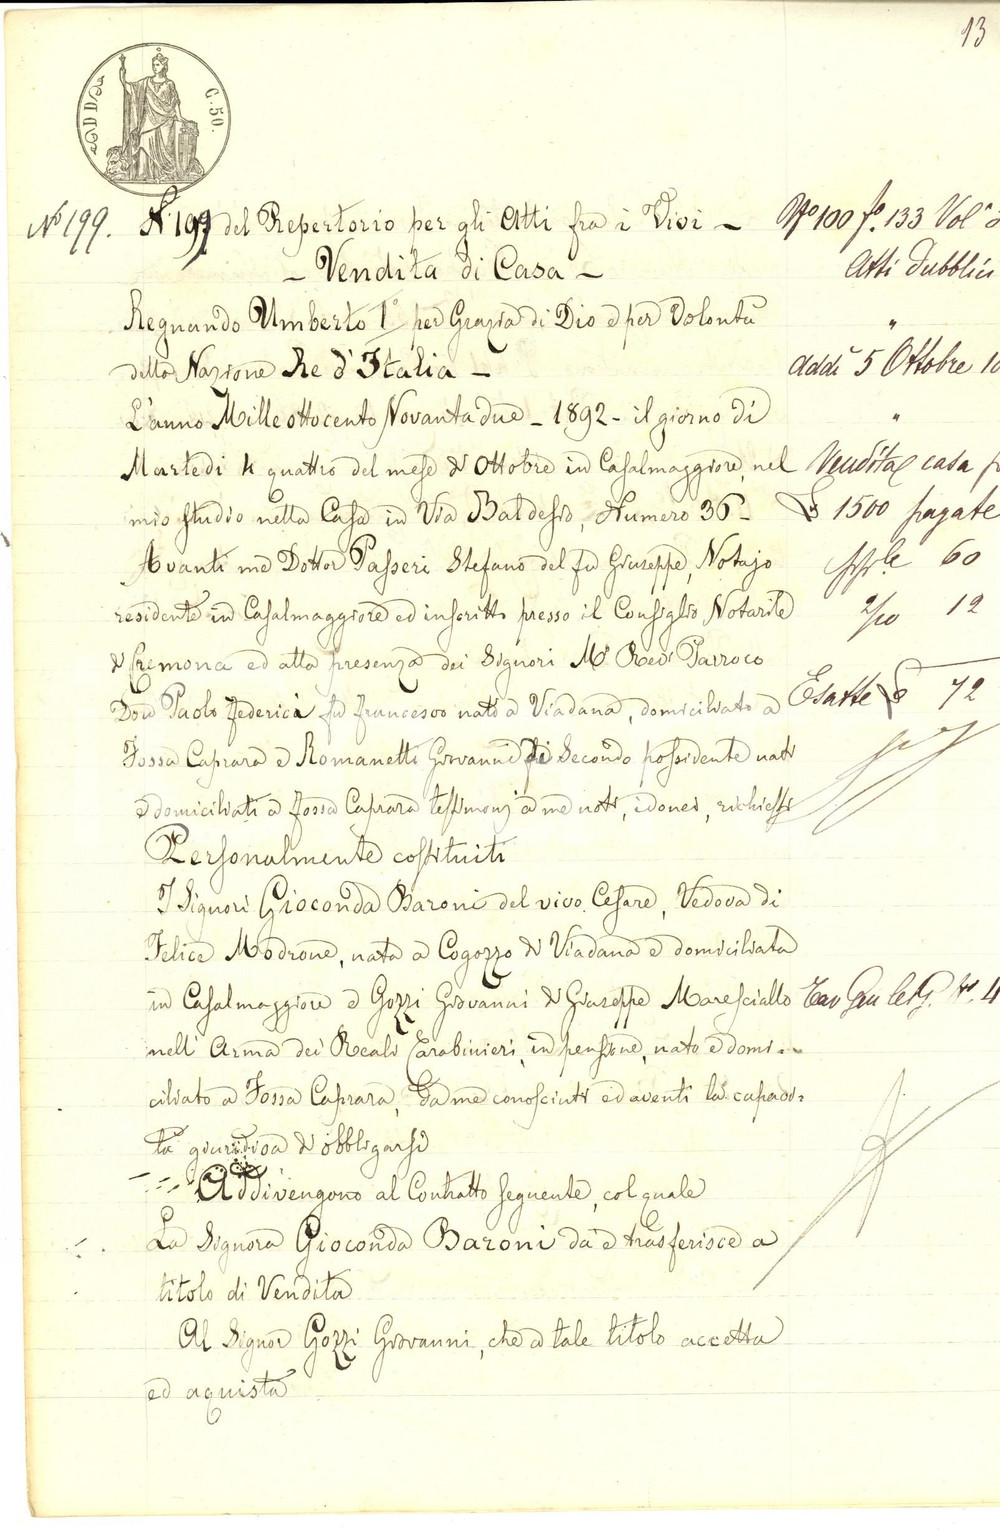 13
C. 50.
Nº 199.
Nº 199 del Repertorio per gli Atti fra i Vivi -
- Vendita di Casa -
Regnando Umberto Iº per Grazia di Dio e per Volontà
della Nazione Re d'Italia -
L'anno Mille ottocento Novantadue - 1892 - il giorno di
Martedi 4 quattro del mese di Ottobre in Casalmaggiore, nel
mio studio nella Casa in Via Baldesio, Numero 36 -
Avanti me Dottor Passeri Stefano del fu Giuseppe, Notajo
residente in Casalmaggiore ed inscritto presso il Consiglio Notarile
di Cremona ed alla presenza dei Signori Mº Redº Parroco
Don Paolo Federici fu Francesco nato a Viadana, domiciliato a
Fossa Caprara e Romanetti Giovanni di Secondo possidente nato
e domiciliati a Fossa Caprara testimonj a me noti, idonei, richiesti
Personalmente costituiti
I Signori Gioconda Baroni del vivo Cesare, Vedova di
Felice Modrone, nata a Cogozzo di Viadana e domiciliata
in Casalmaggiore e Gozzi Giovanni di Giuseppe Maresciallo
nell' Arma dei Reali Carabinieri, in pensione, nato e domi=
ciliato a Fossa Caprara, da me conosciuti ed aventi la capaci=
tà giuridica di obbligarsi
Addivengono al Contratto seguente, col quale
La Signora Gioconda Baroni dà e trasferisce a
titolo di Vendita
Al Signor Gozzi Giovanni, che a tale titolo accetta
ed aquista
Nº 100 fº. 133 Volº
Atti Pubblici
"
Addì 5 Ottobre
"
Vendita casa
£ 1500 pagate
60
2/10 12
Esatte £ 72